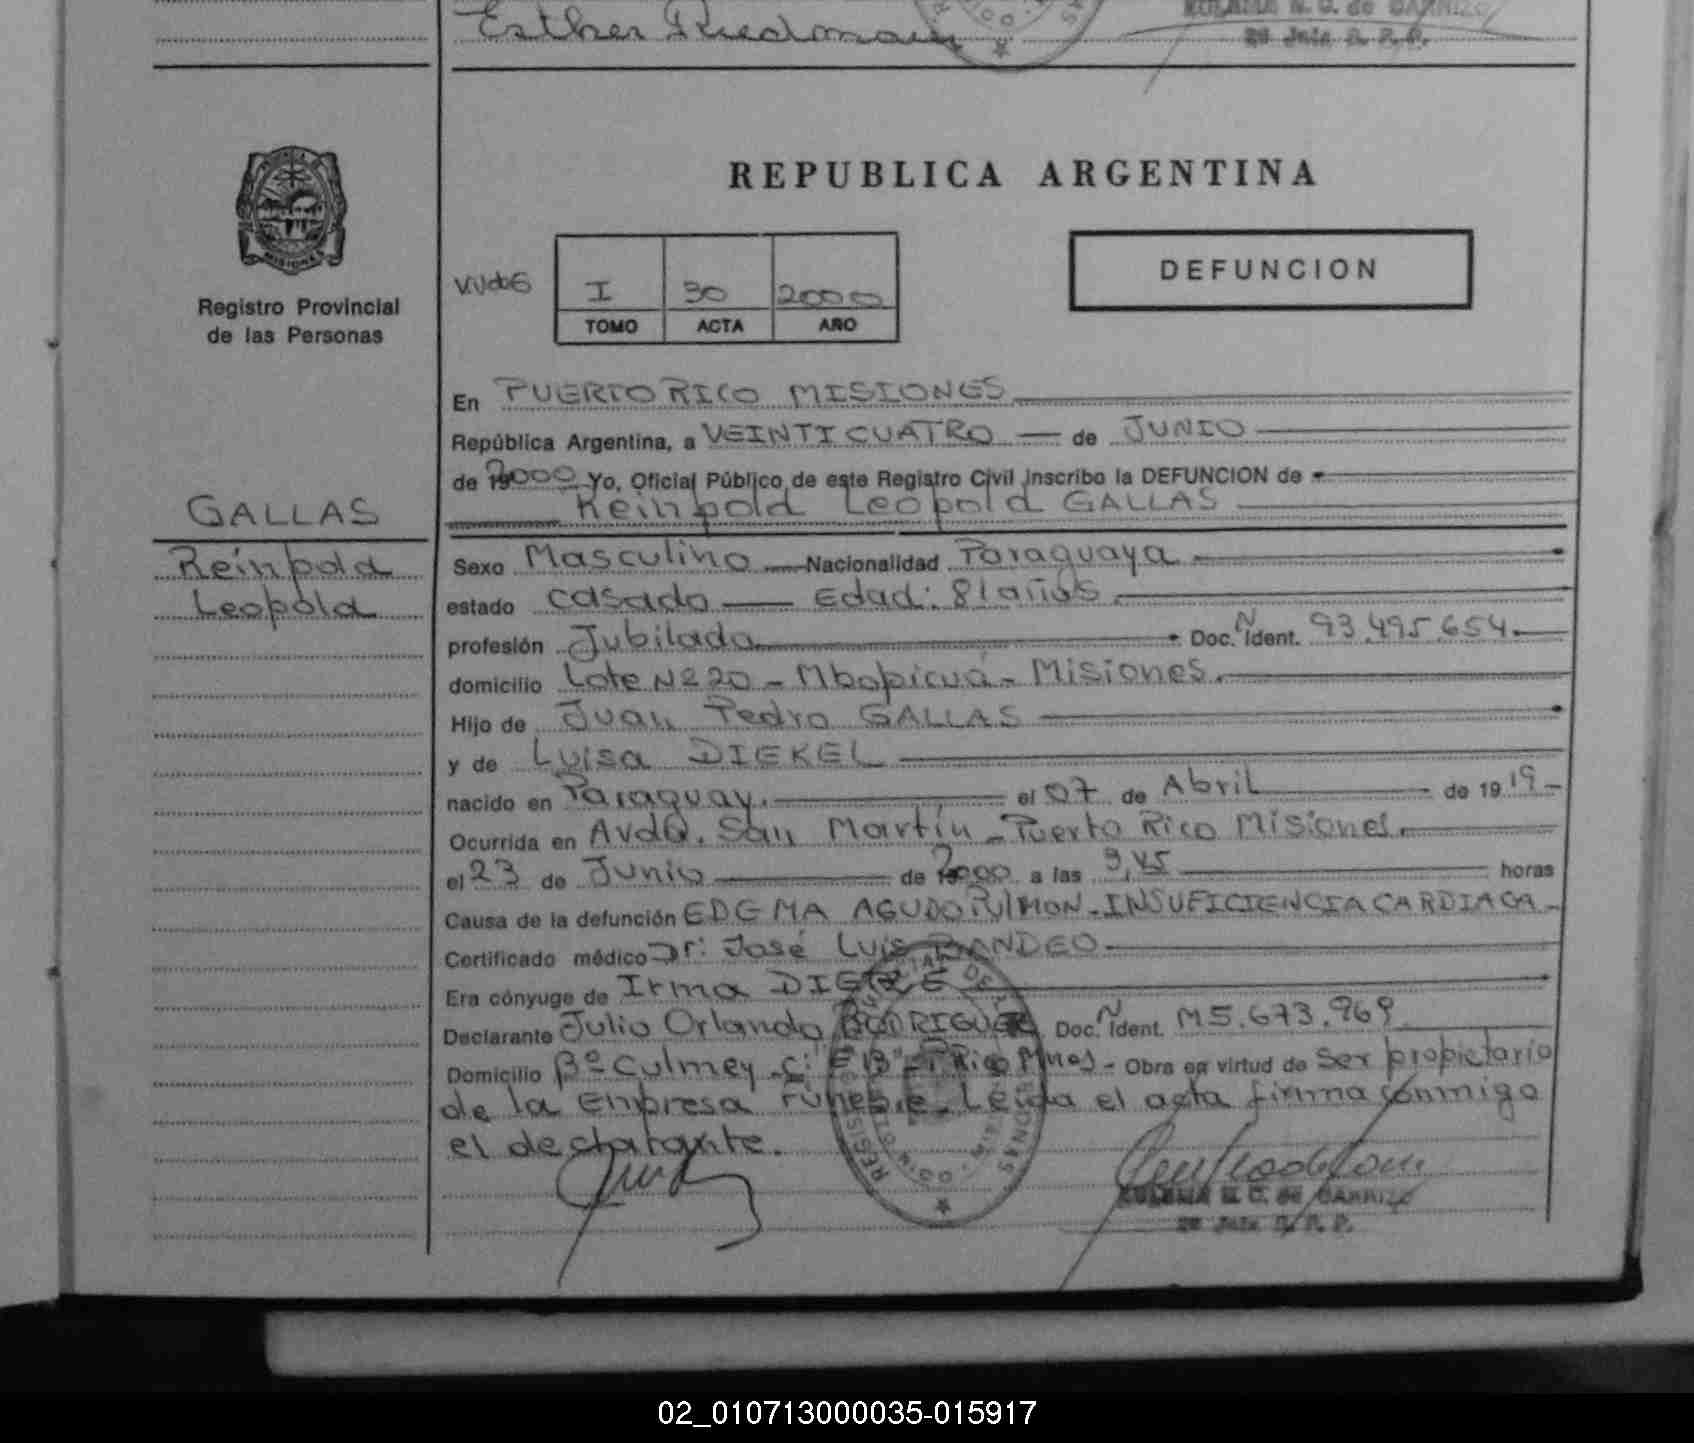 Esther Riedmann
EULALIA N. C. de CARRIZO
REPUBLICA ARGENTINA
MISIONES
Registro Provincial
de las Personas
I 30 2000
TOMO ACTA AÑO
DEFUNCION
En PUERTO RICO MISIONES
República Argentina, a VEINTICUATRO de JUNIO
de 2000 Yo, Oficial Público de este Registro Civil inscribo la DEFUNCION de
Reinpold Leopold GALLAS
GALLAS
Reinpold
Leopold
Sexo Masculino Nacionalidad Paraguaya
estado casado Edad: 81 años
profesión Jubilado Doc. N Ident. 93.495.654.
domicilio Lote Nº 20 - Mbopicuá - Misiones.
Hijo de Juan Pedro GALLAS
y de Luisa DIEKEL
nacido en Paraguay. el 07 de Abril de 1919-
Ocurrida en Avda. San Martín - Puerto Rico Misiones.
el 23 de Junio de 2000 a las 9,45 horas
Causa de la defunción EDEMA AGUDO PULMON - INSUFICIENCIA CARDIACA -
Certificado médico Dr: José Luis BANDEO
Era cónyuge de Irma
Declarante Julio Orlando RODRIGUEZ Doc. N Ident. M5.673.969
Domicilio Bº Culmey - C: "E 13" - P. Rico Mnes - Obra en virtud de ser propietario
de la Empresa Funebre. Leida el acta firma conmigo
el declarante.
EULALIA N. C. de CARRIZO
02_010713000035-015917